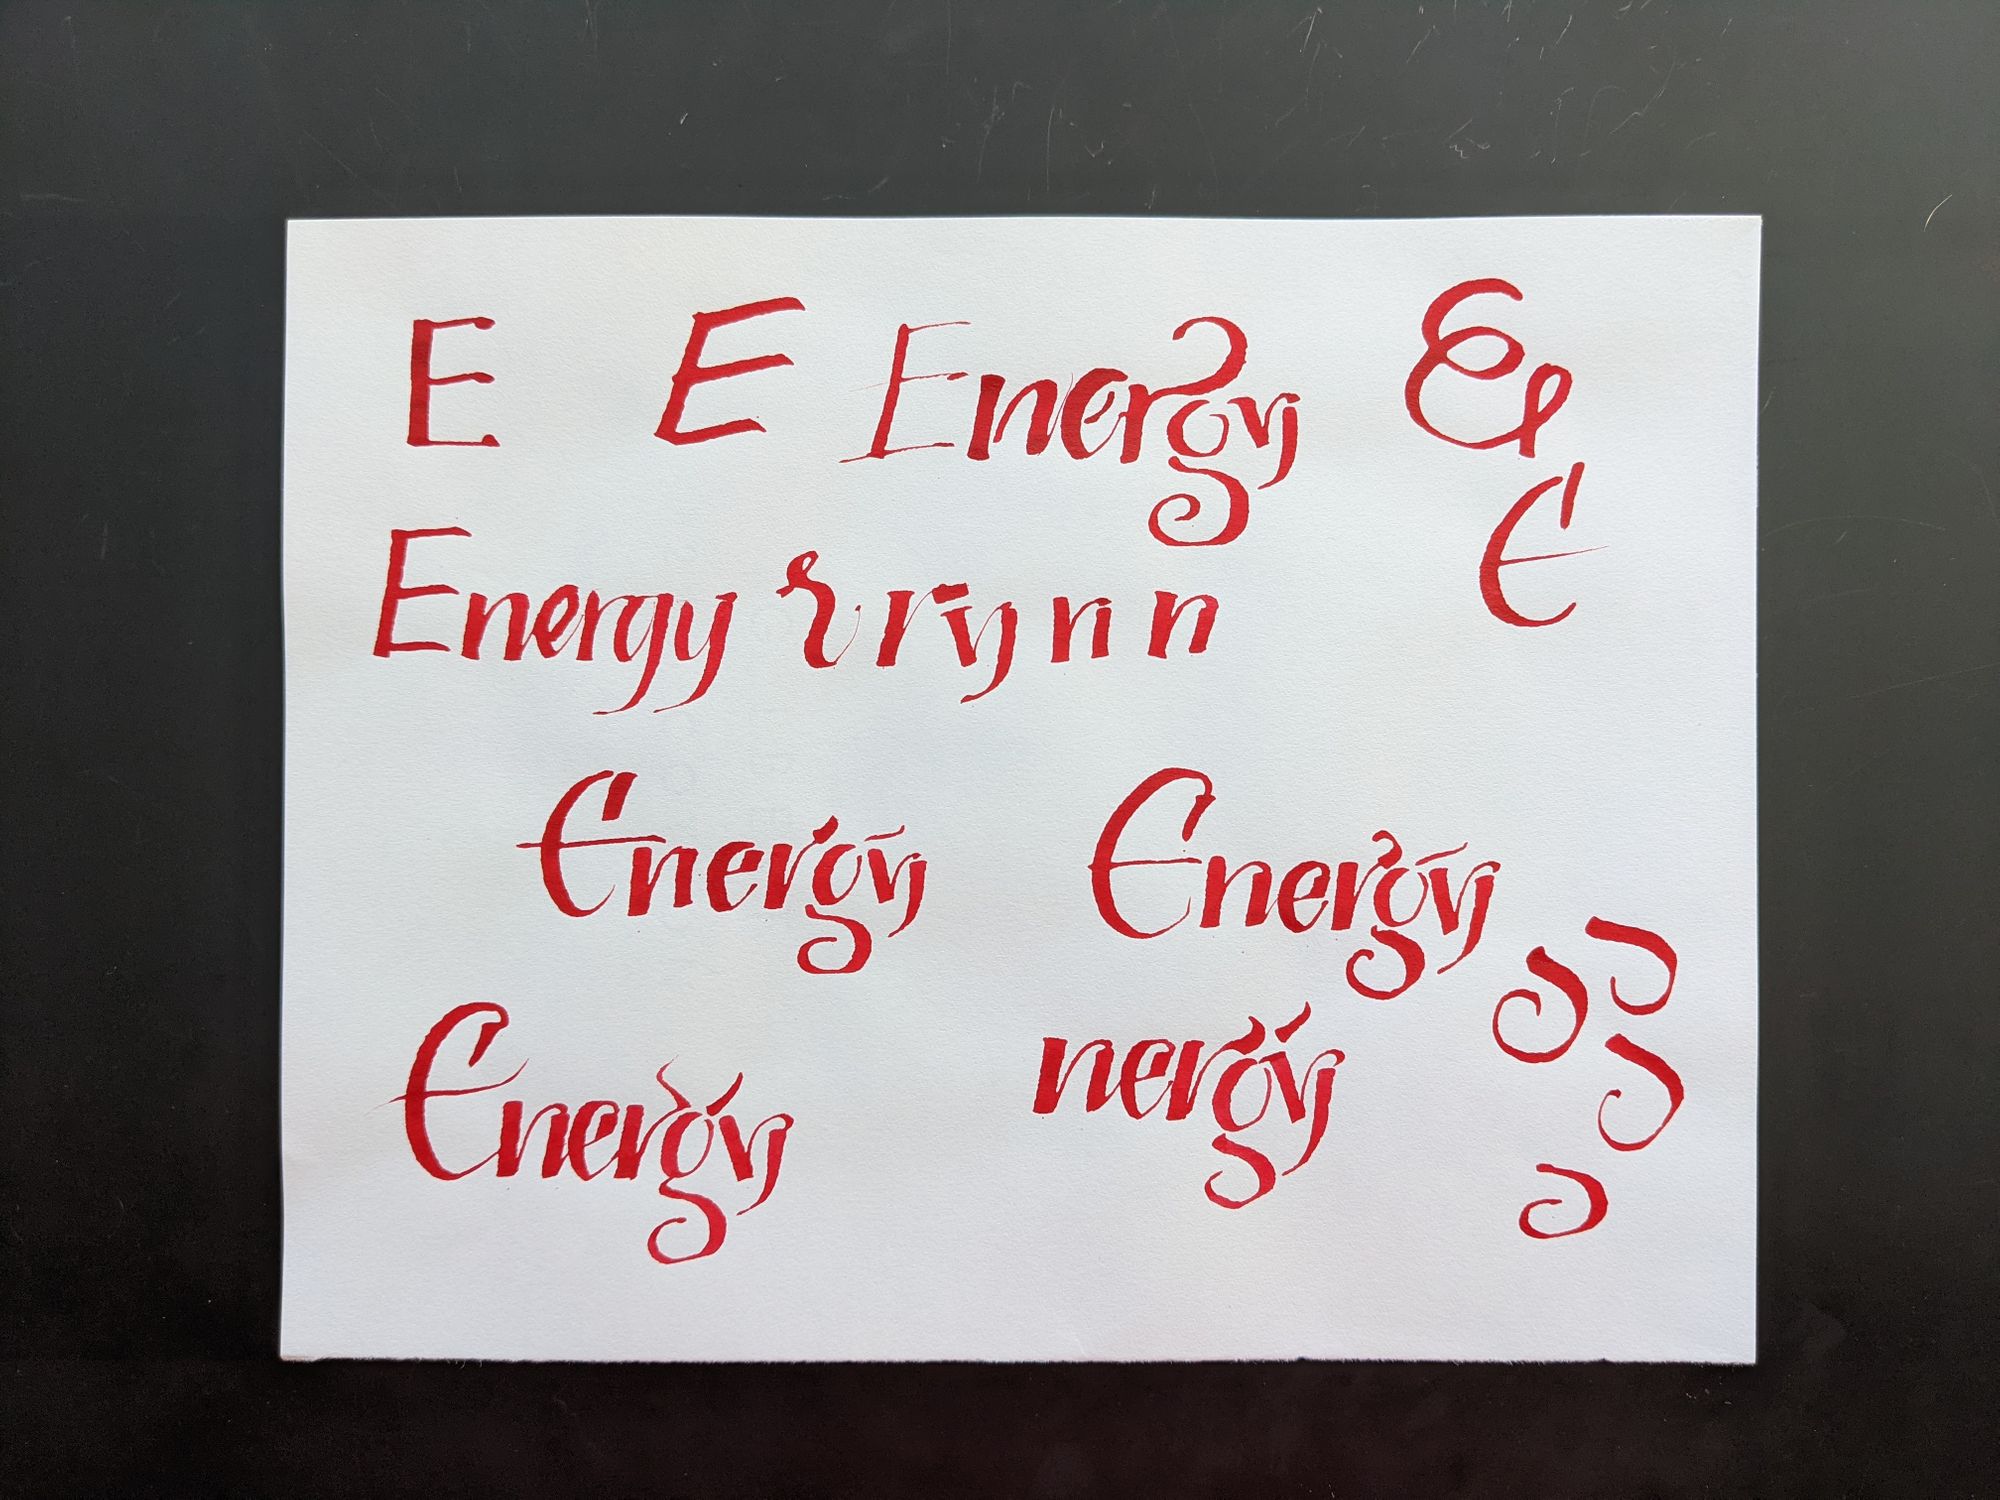 E E Energy E
E
Energy r r y n n
Energy Energy
Energy nergy